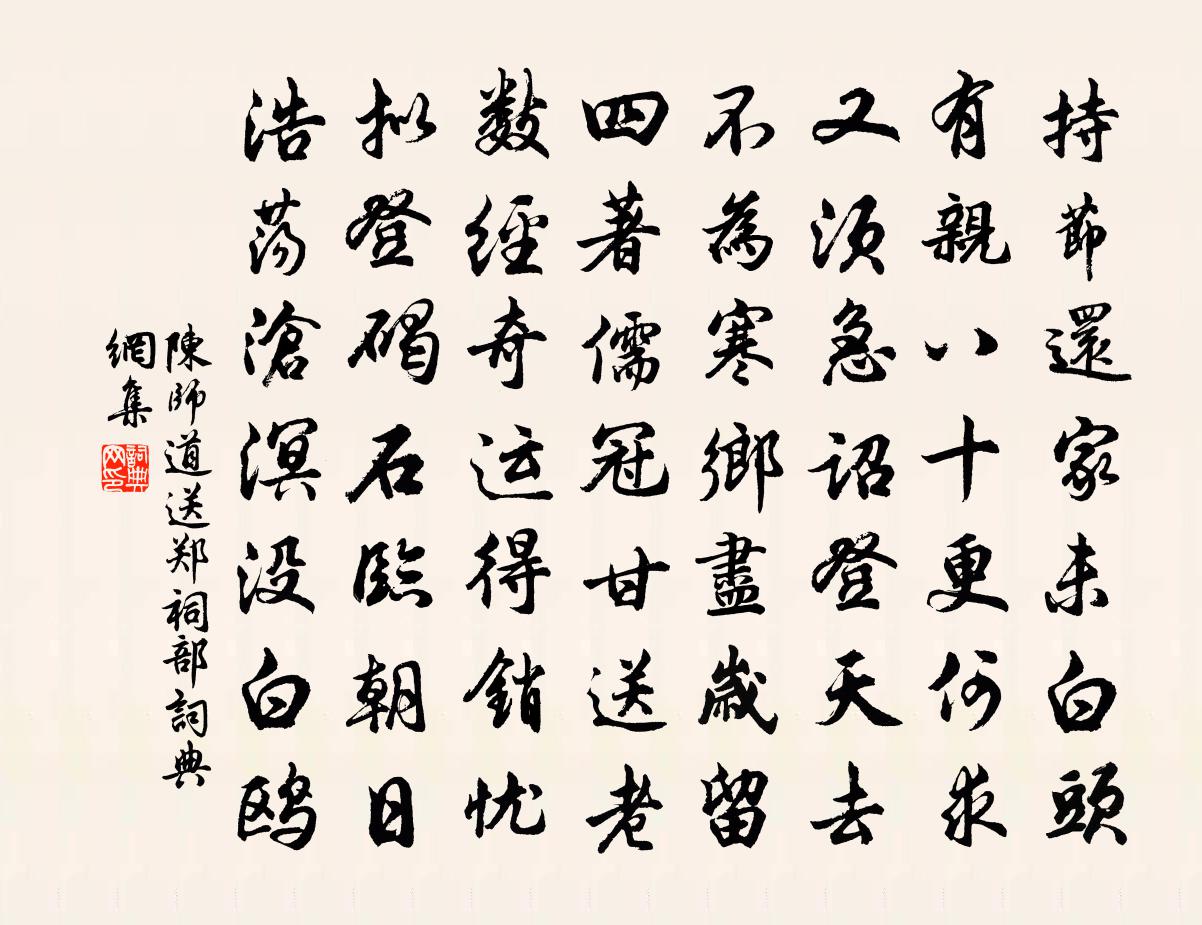 持節還家未白頭
有親八十更何求
又須急詔登天去
不為寒鄉盡歲留
四著儒冠甘送老
数經奇运得銷忧
拟登碣石臨朝日
浩荡滄溟没白鸥
陳師道送郑祠部詞典
網集
詞典网印